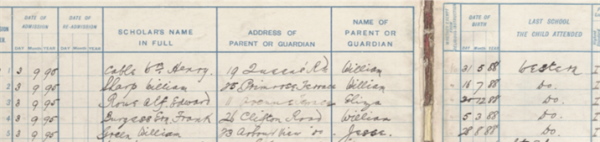 DATE OF ADMISSION DATE OF RE-ADMISSION SCHOLAR'S NAME IN FULL ADDRESS OF PARENT OR GUARDIAN NAME OF PARENT OR GUARDIAN DATE OF BIRTH LAST SCHOOL THE CHILD ATTENDED
DAY Month YEAR DAY Month YEAR DAY Month YEAR
3 9 95 Henry 19 Queen's Rd William 21 5 88
3 9 95 Sharp William 25 Primrose Terrace William 18 7 88 Do.
3 9 95 Rous Alf Edward 1 Eliza 12 88 Do.
3 9 95 Burgess Frank 26 Clifton Road William 5 3 88 Do.
3 9 95 Green William 73 Jesse 28 8 88 Do.